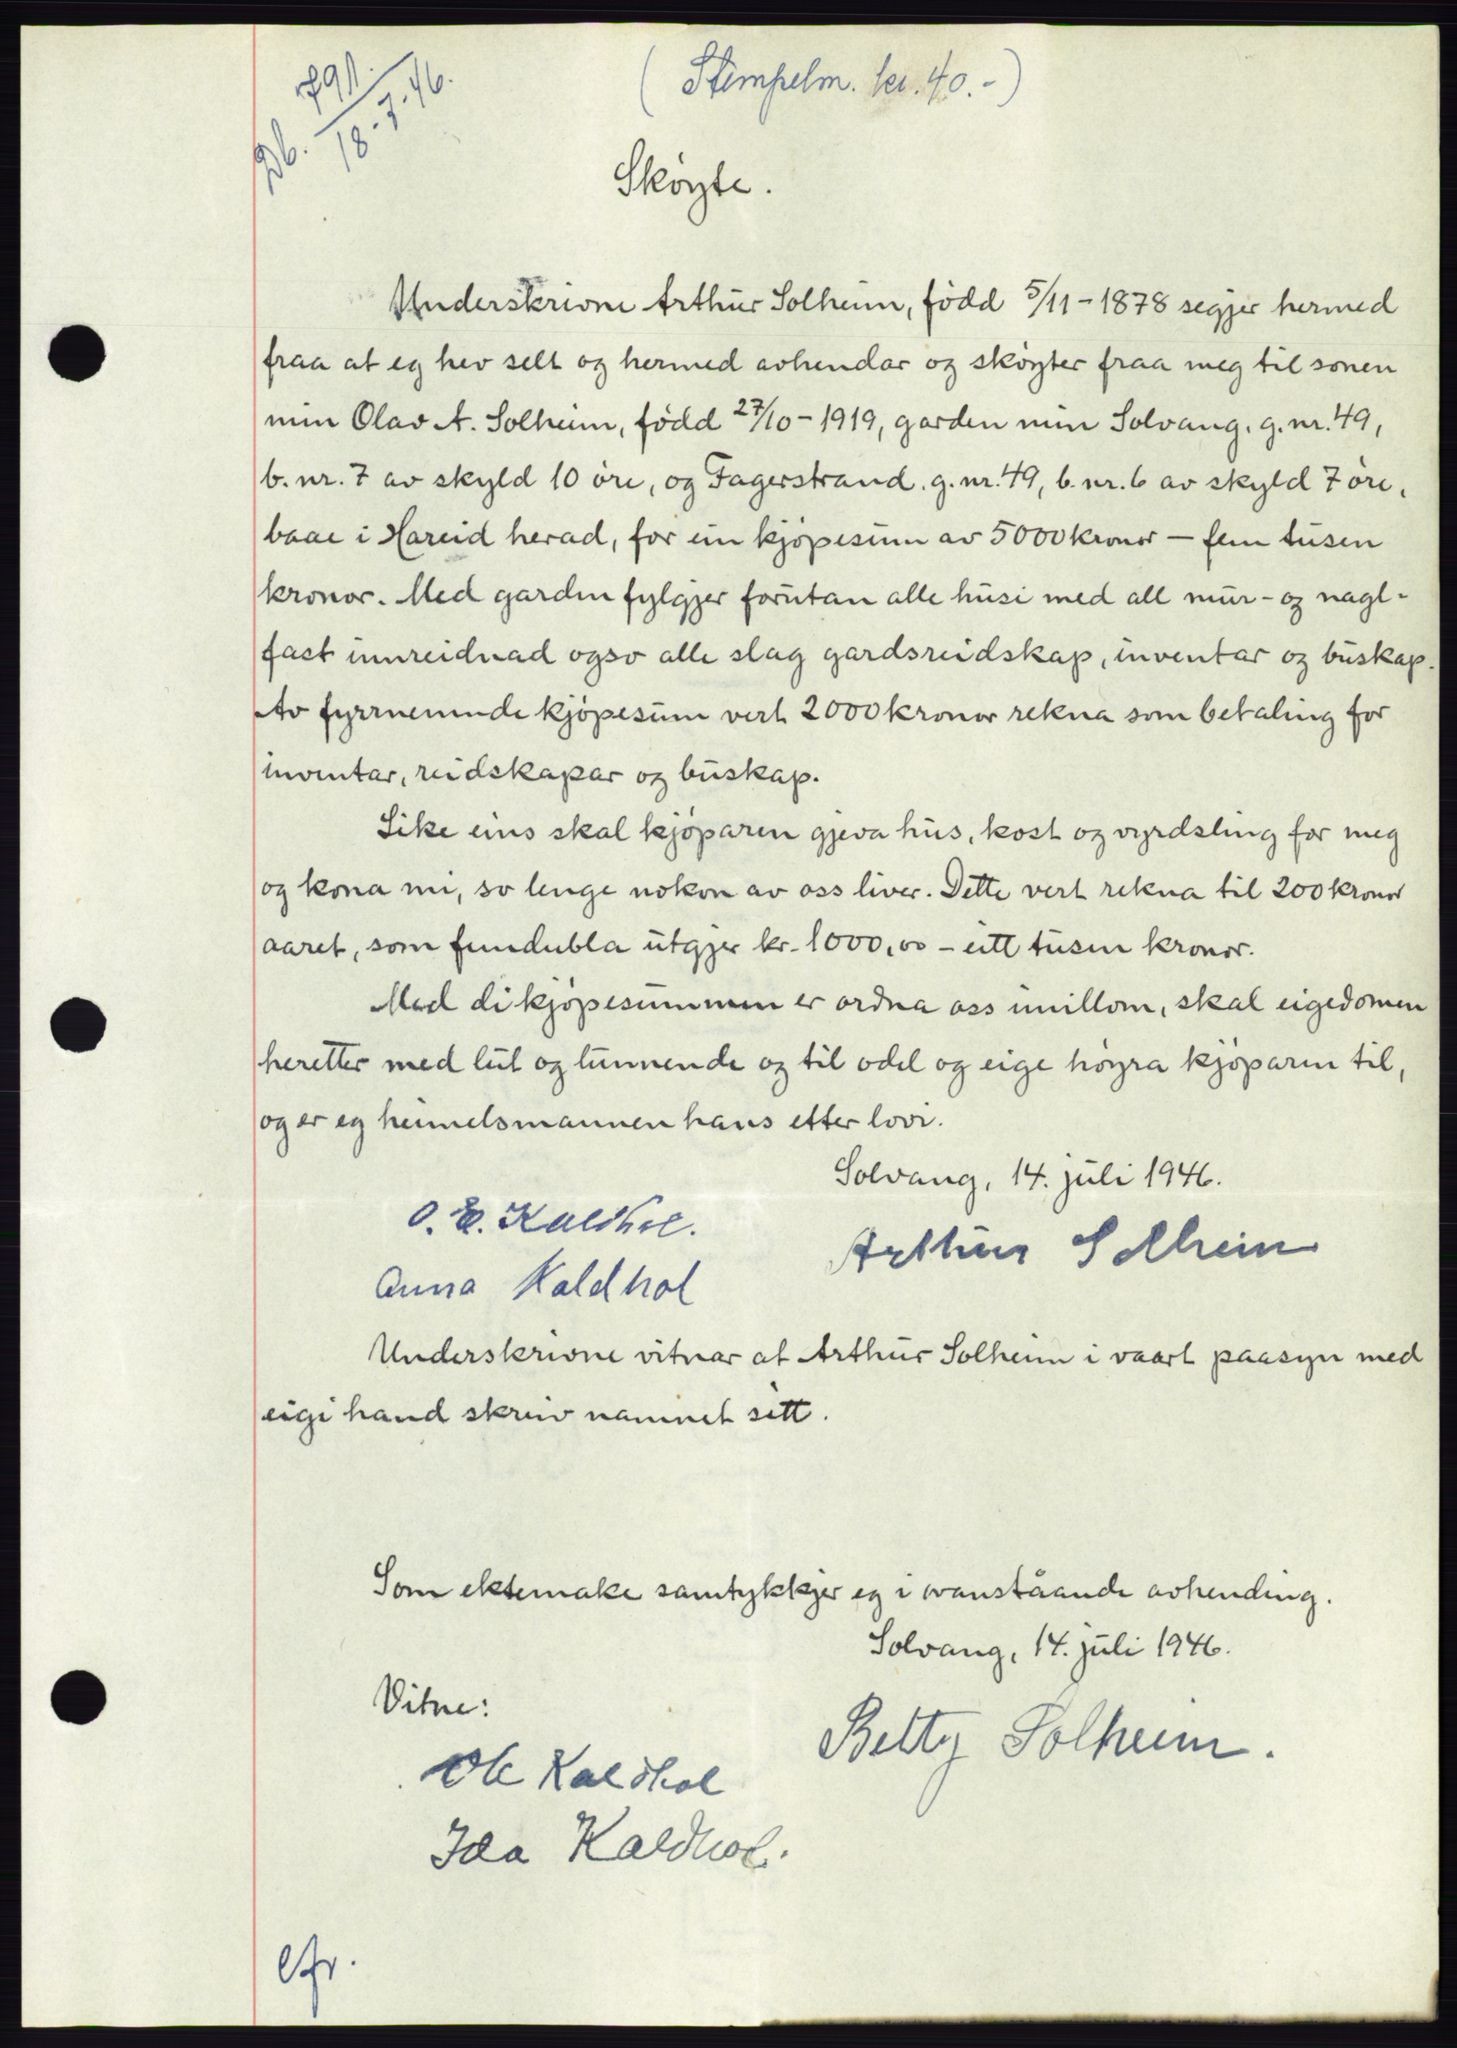 (Stempelm. kr. 40.-)
Db. 791. / 18-7-46.
Skøyte.
Underskrivne Arthur Solheim, fødd 5/11-1878 segjer hermed
fraa at eg hev selt og hermed avhendar og skøyter fraa meg til sonen
min Olav A. Solheim, fødd 27/10-1919, garden min Solvang, g. nr. 49,
b. nr. 7 av skyld 10 øre, og Fagerstrand. g. nr. 49, b. nr. 6 av skyld 7 øre,
baae i Hareid herad, for ein kjøpesum av 5000 kronor – fem tusen
kronor. Med garden fylgjer forutan alle husi med all mur- og nagl-
fast innreidnad ogso alle slag gardsreidskap, inventar og buskap.
Av fyrrnemnde kjøpesum vert 2000 kronor rekna som betaling for
inventar, reidskapar og buskap.
Like eins skal kjøparen gjeva hus, kost og vyrdsling for meg
og kona mi, so lenge nokon av oss liver. Dette vert rekna til 200 kronor
aaret, som femdubla utgjer kr. 1000,00 – eitt tusen kronor.
Med di kjøpesummen er ordna oss imillom, skal eigedomen
heretter med lut og lunnende og til odel og eige høyra kjøparen til,
og er eg heimelsmannen hans etter lovi.
Solvang, 14. juli 1946.
O. E. Kaldhol.
Arthur Solheim
Anna Kaldhol
Underskrivne vitnar at Arthur Solheim i vaart paasyn med
eigi hand skreiv namnet sitt.
Som ektemake samtykkjer eg i ovanståande avhending.
Solvang, 14. juli 1946.
Vitne:
Betty Solheim.
Ole Kaldhol
Ida Kaldhol.